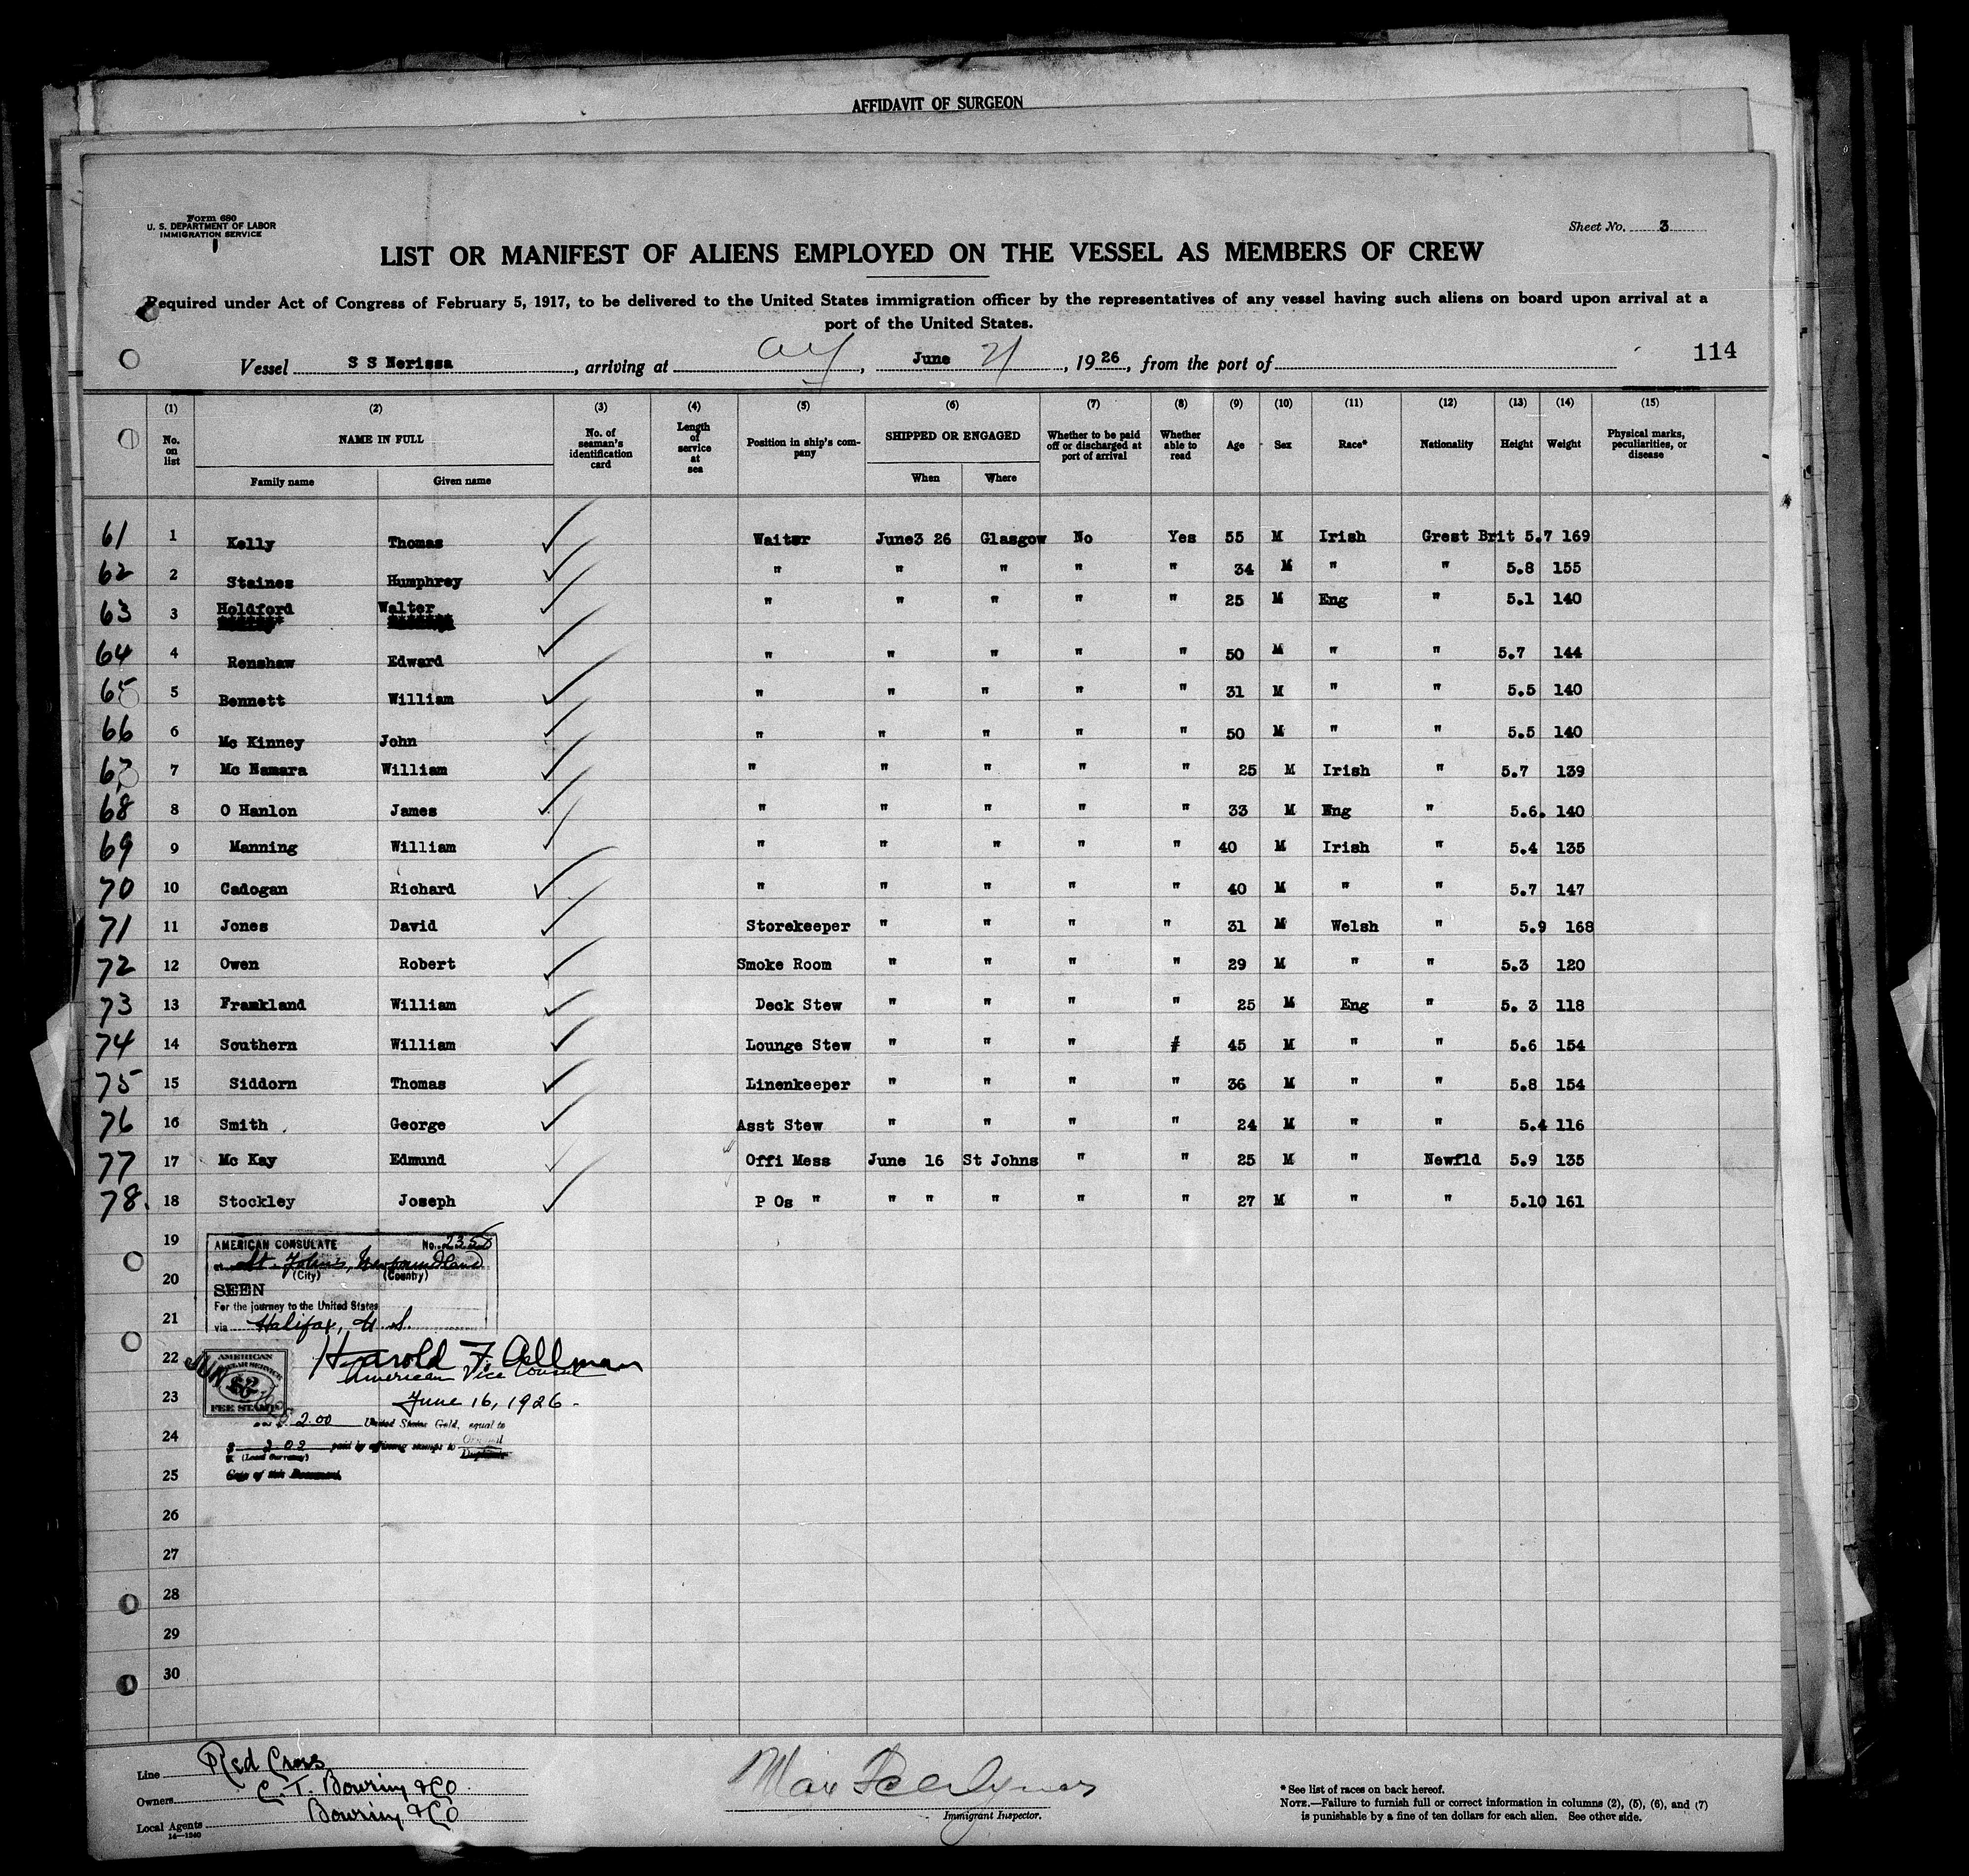 AFFIDAVIT OF SURGEON
Form 680
U. S. DEPARTMENT OF LABOR
IMMIGRATION SERVICE
Sheet No. 3
LIST OR MANIFEST OF ALIENS EMPLOYED ON THE VESSEL AS MEMBERS OF CREW
Required under Act of Congress of February 5, 1917, to be delivered to the United States immigration officer by the representatives of any vessel having such aliens on board upon arrival at a
port of the United States.
Vessel S S Nerissa, arriving at , June 21, 1926, from the port of
114
(1) (2) (3) (4) (5) (6) (7) (8) (9) (10) (11) (12) (13) (14) (15)
No. on list NAME IN FULL No. of seaman's identification card Length of service at sea Position in ship's company SHIPPED OR ENGAGED Whether to be paid off or discharged at port of arrival Whether able to read Age Sex Race* Nationality Height Weight Physical marks, peculiarities, or disease
Family name Given name When Where
61 1 Kelly Thomas Waiter June3 26 Glasgow No Yes 55 M Irish Grest Brit 5.7 169
62 2 Staines Humphrey " " " " " 34 M " " 5.8 155
63 3 Holdford Walter " " " " " 25 M Eng " 5.1 140
64 4 Renshaw Edward " " " " " 50 M " " 5.7 144
65 5 Bennett William " " " " " 31 M " " 5.5 140
66 6 Mc Kinney John " " " " " 50 M " " 5.5 140
67 7 Mc Namara William " " " " " 25 M Irish " 5.7 139
68 8 O Hanlon James " " " " " 33 M Eng " 5.6. 140
69 9 Manning William " " " " " 40 M Irish " 5.4 135
70 10 Cadogan Richard " " " " " 40 M " " 5.7 147
71 11 Jones David Storekeeper " " " " 31 M Welsh " 5.9 168
72 12 Owen Robert Smoke Room " " " " 29 M " " 5.3 120
73 13 Framkland William Deck Stew " " " " 25 M Eng " 5. 3 118
74 14 Southern William Lounge Stew " " " 45 M " " 5.6 154
75 15 Siddorn Thomas Linenkeeper " " " " 36 M " " 5.8 154
76 16 Smith George Asst Stew " " " " 24 M " " 5.4 116
77 17 Mc Kay Edmund Offi Mess June 16 St Johns " " 25 M " Newfld 5.9 135
78. 18 Stockley Joseph P Os " " " " " " 27 M " " 5.10 161
19
20
21
22
23
24
25
26
27
28
29
30
AMERICAN CONSULATE No. 2358
at St. John's, Newfoundland
(City) (Country)
SEEN
For the journey to the United States
via Halifax, N. S.
Harold F. Allman
American Vice Consul
June 16, 1926.
AMERICAN
FEE STAMP
JUN
$2
2.00 United States Gold, equal to
$ 2.02 paid by affixing stamps to Original
Duplicate
(Local Currency)
Copy of this Document.
Line Red Cross
Owners C. T. Bowring & Co.
Local Agents Bowring & Co
14—1240
Max
Immigrant Inspector.
* See list of races on back hereof.
NOTE.—Failure to furnish full or correct information in columns (2), (5), (6), and (7)
is punishable by a fine of ten dollars for each alien. See other side.